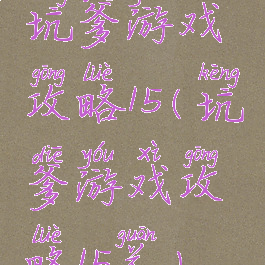 坑爹游戏
gōng lüè kēng
攻略15(坑
diē yóu xì gōng
爹游戏攻
lüè guān
略15关)